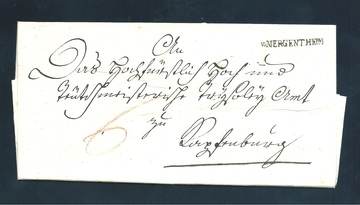 v. MERGENTHEIM
An
Das Hochfürstlich Hoch und
Teutschmeisterische Amt
zu
Kapfenburg